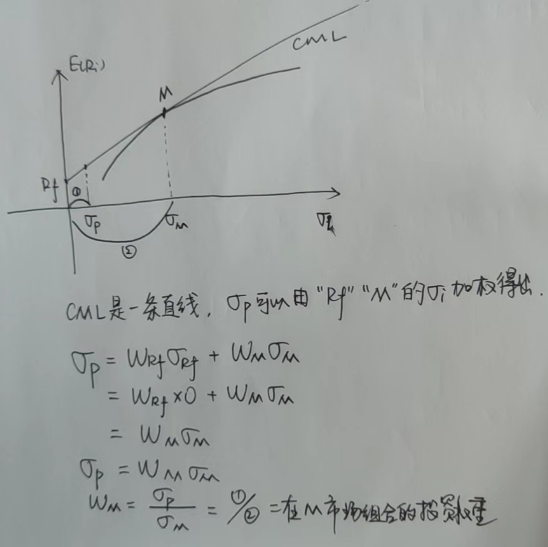 E(Ri)
CML
M
Rf
①
σp
σM
②
CML是一条直线，σp可以由"Rf" "M"的σi加权得出.
σp = WRfσRf + WMσM
= WRf×0 + WMσM
= WMσM
σp = WMσM
WM = σp/σM = ①/② = 在M市场组合的投资权重